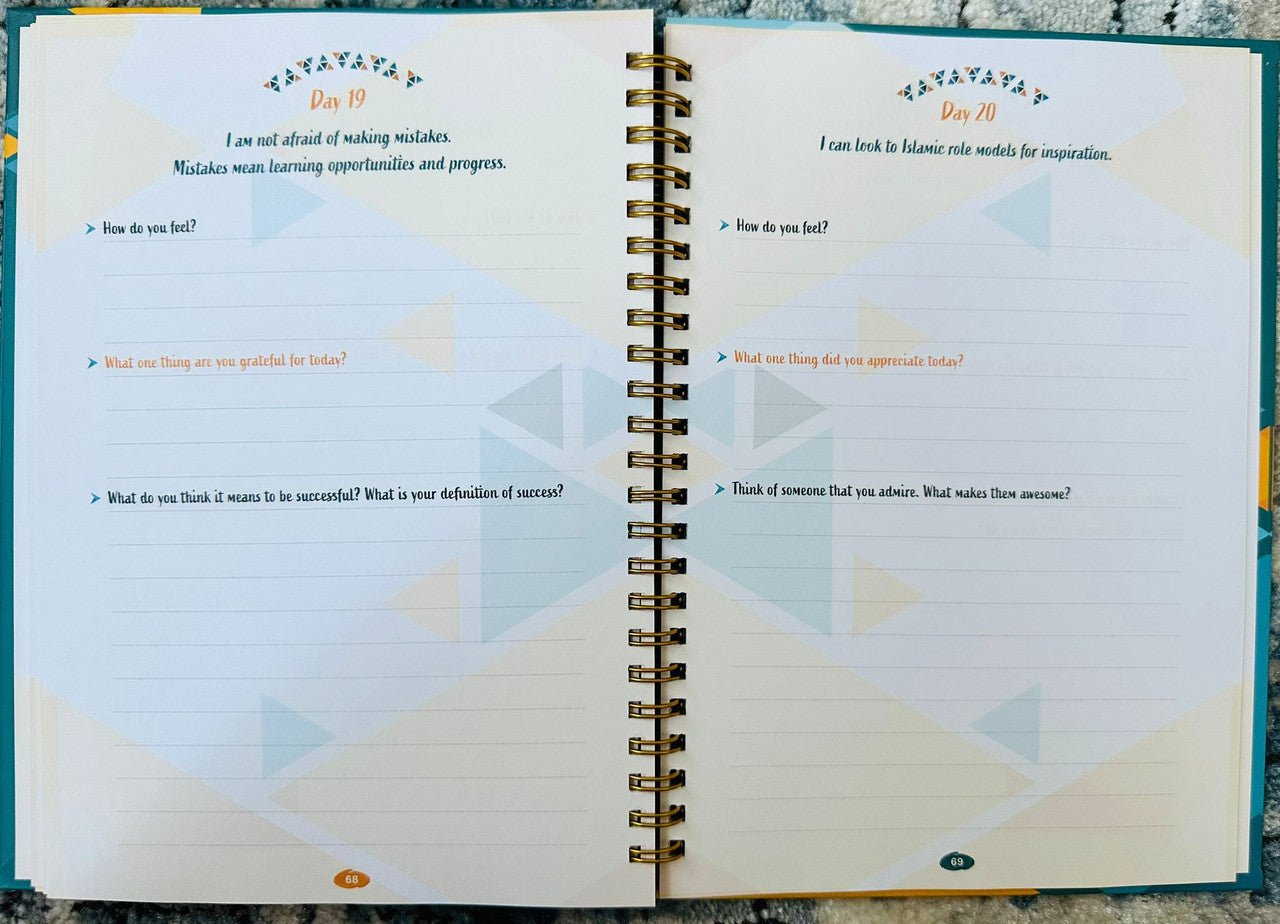 Day 19
I am not afraid of making mistakes.
Mistakes mean learning opportunities and progress.
How do you feel?
What one thing are you grateful for today?
What do you think it means to be successful? What is your definition of success?
68
Day 20
I can look to Islamic role models for inspiration.
How do you feel?
What one thing did you appreciate today?
Think of someone that you admire. What makes them awesome?
69